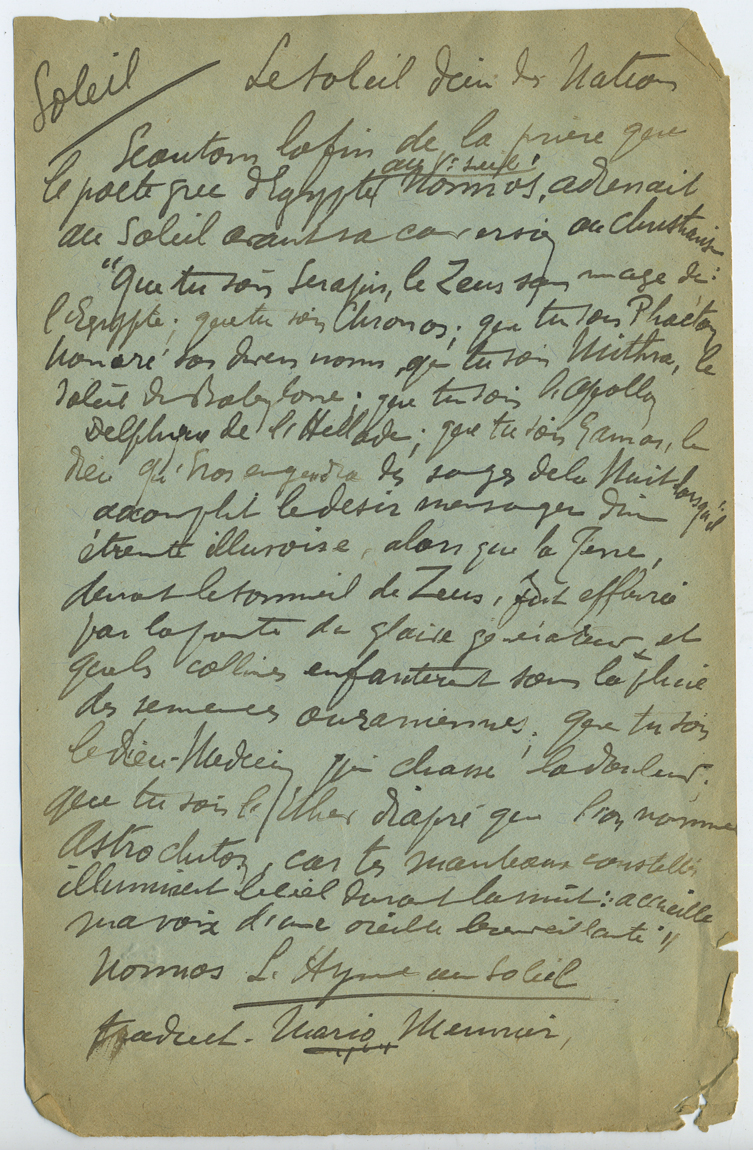 Soleil
Le Soleil dieu des Nations
Ecoutons la fin de la prière que
au V e siècle
le poète grec d'Egypte Nonnos, adressait
au Soleil avant sa conversion au Christianisme
"Que tu sois Serapis, le Zeus sans nuage de
l'Egypte; que tu sois Chronos; que tu sois Phaéton
honoré sous divers noms, que tu sois Mithra, le
Soleil de Babylone; que tu sois l'Apollon
Delphique de l'Hellade; que tu sois Gamos, le
dieu qu'Eros engendra des songes de la Nuit lorsqu'il
accomplit le désir mensonger d'une
étreinte illusoire, alors que la Terre,
devant le sommeil de Zeus, fut effleurée
par la pointe du glaive générateur, et
que les collines enfantèrent sous la pluie
des semences ouraniennes; que tu sois
le Dieu-Medecin qui chasse la douleur;
que tu sois l'Ether diapré que l'on nomme
Astrochiton, car tes manteaux constellés
illuminent le ciel durant la nuit: accueille
ma voix d'une oreille bienveillante"
Nonnos L'Hymne au Soleil
traduct. Mario Meunier,